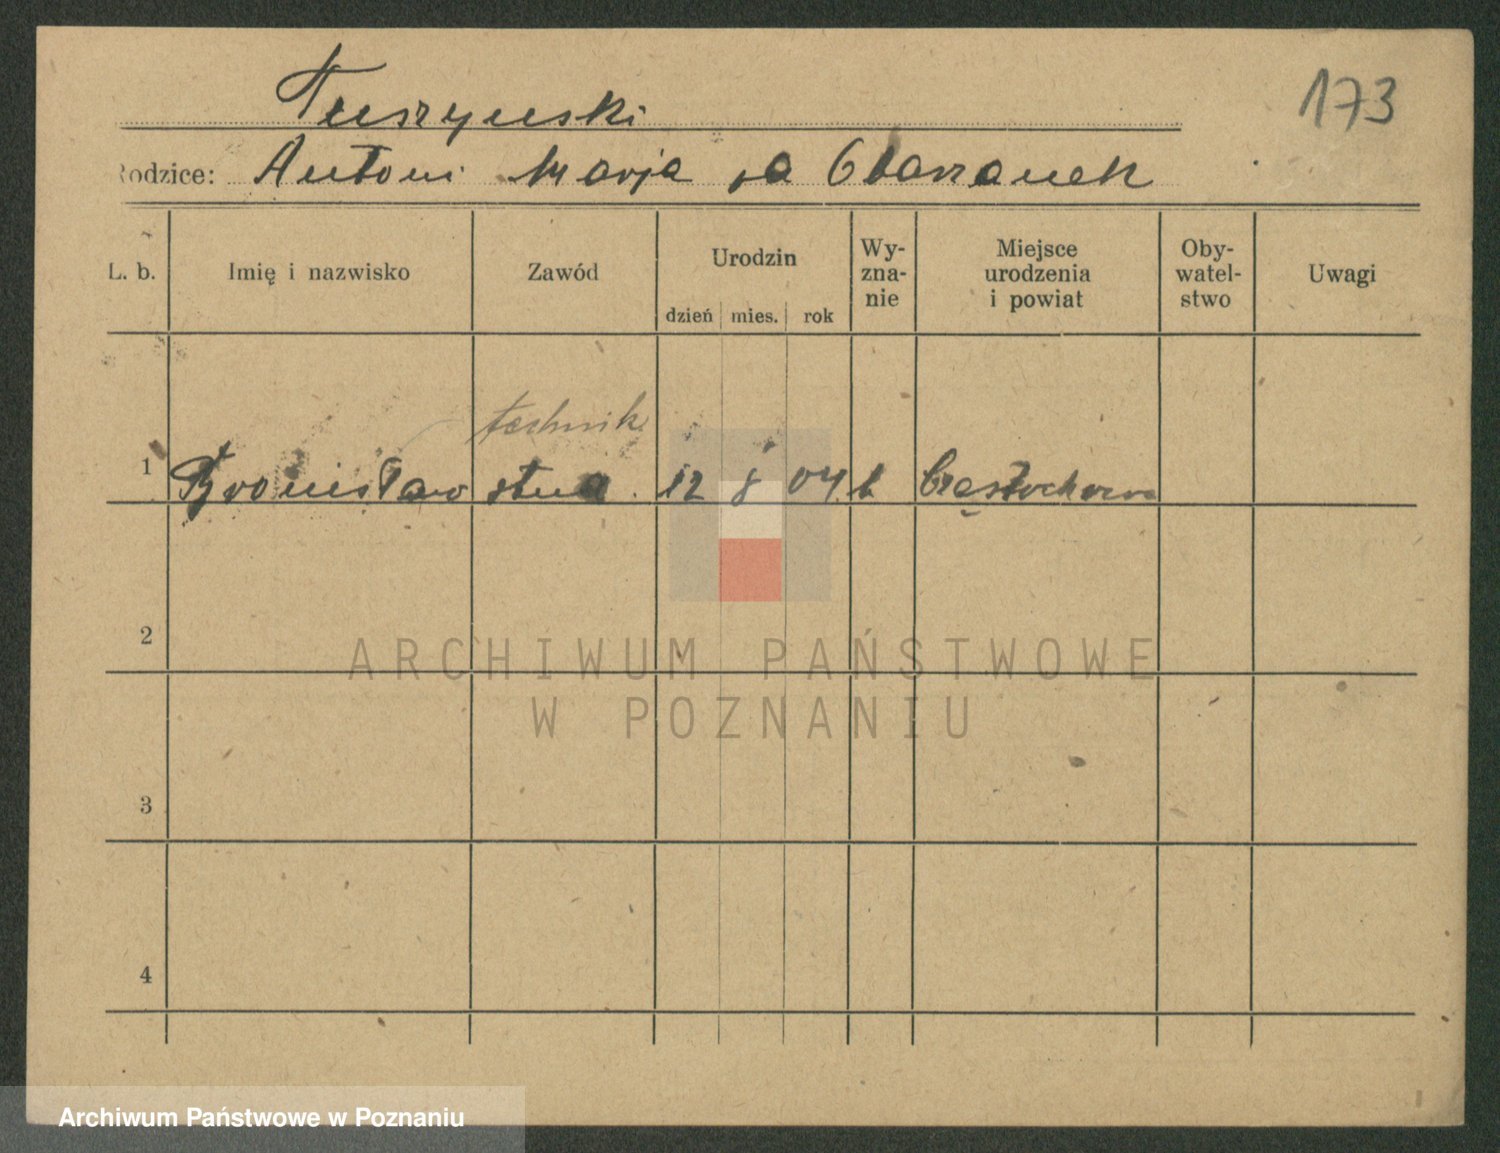 Tuszynski
173
Rodzice: Antoni Marja za Obarzanek
L. b. Imię i nazwisko Zawód Urodzin dzień mies. rok Wyznanie Miejsce urodzenia i powiat Obywatelstwo Uwagi
technik
1 Bronisław stud. 12 8 04 k Częstochowa
2
ARCHIWUM PAŃSTWOWE
W POZNANIU
3
4
Archiwum Państwowe w Poznaniu